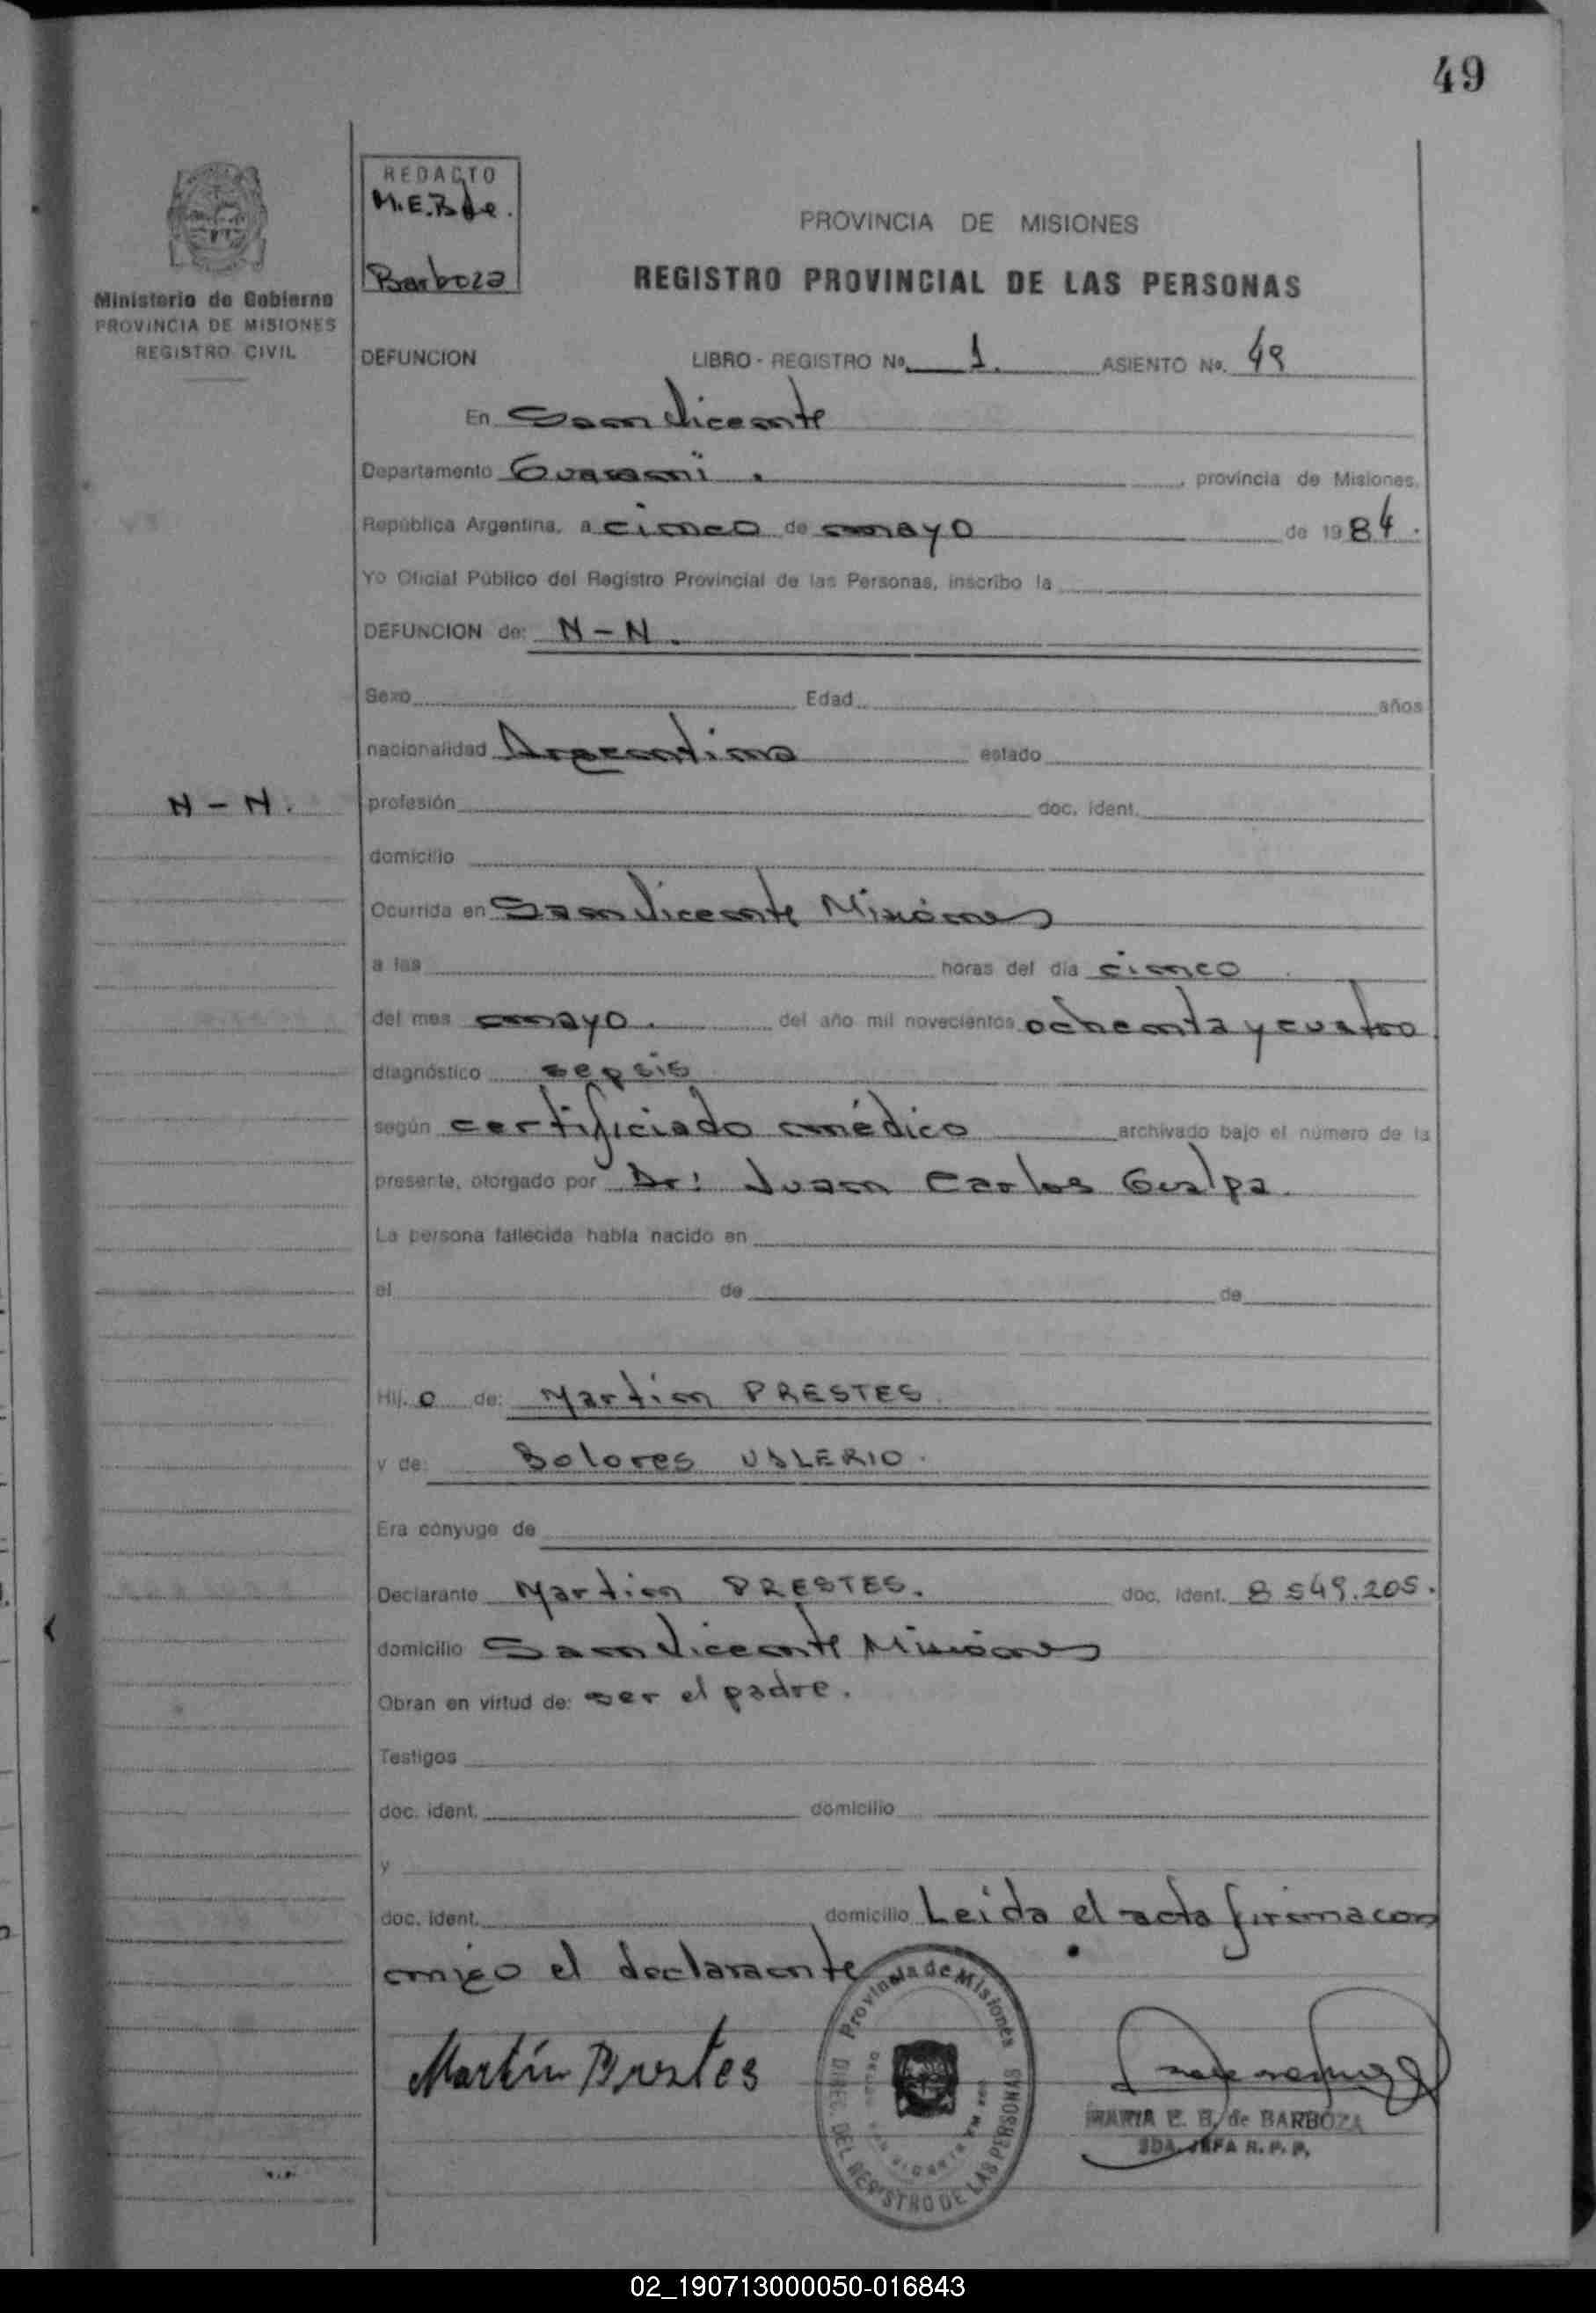 49
REDACTO
M.E.B de.
Barboza
PROVINCIA DE MISIONES
REGISTRO PROVINCIAL DE LAS PERSONAS
Ministerio de Gobierno
PROVINCIA DE MISIONES
REGISTRO CIVIL
DEFUNCION LIBRO - REGISTRO No. 1. ASIENTO No. 49
En San Vicente
Departamento Guarani . , provincia de Misiones,
República Argentina, a cinco de mayo de 1984.
Yo Oficial Público del Registro Provincial de las Personas, inscribo la
DEFUNCION de: N-N.
Sexo Edad años
nacionalidad Argentina estado
N-N.
profesión doc. ident.
domicilio
Ocurrida en San Vicente Misiones
a las horas del día cinco
del mes mayo. del año mil novecientos ochenta y cuatro
diagnóstico sepsis
según certificiado médico archivado bajo el número de la
presente, otorgado por Dr: Juan Carlos Gualpa.
La persona fallecida había nacido en
el de de
Hij. o de: Martin PRESTES
y de: Dolores VALERIO.
Era cónyuge de
Declarante Martin PRESTES. doc. ident. 8 549.205.
domicilio San Vicente Misiones
Obran en virtud de: ser el padre.
Testigos
doc. ident. domicilio
y
doc. ident. domicilio Leida el acta firma con
migo el declarante
Martín Prestes
Provincia de Misiones
DIREC. DEL REGISTRO DE LAS PERSONAS
MARIA E. B. de BARBOZA
JEFA R. P. P.
02_190713000050-016843